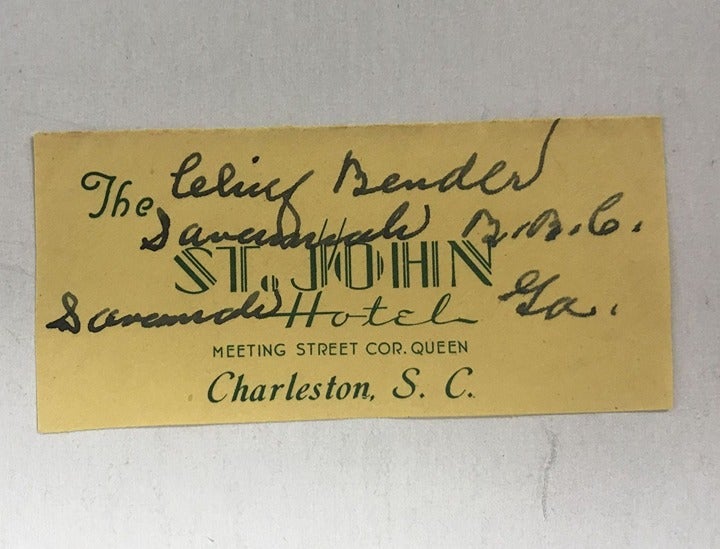 The
Chief Bender
Savannah B.B.C.
ST. JOHN
Savannah Ga.
Hotel
MEETING STREET COR. QUEEN
Charleston, S. C.